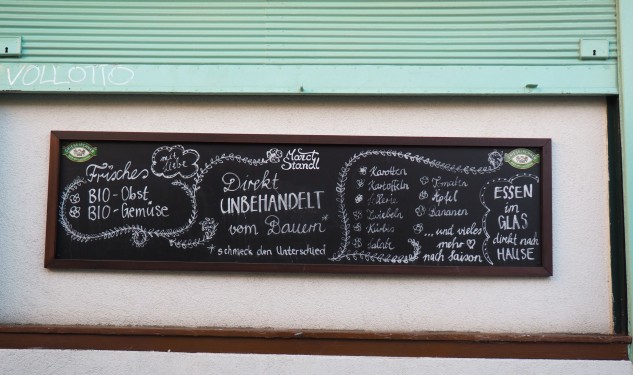 VOLLOTTO
Frisches
mit
liebe
BIO-Obst
BIO-Gemüse
March
Standl
Direkt
UNBEHANDELT
vom Bauern*
*schmeck den Unterschied
Karotten
Kartoffeln
Sellerie
Zwiebeln
Kürbis
Salate
Tomaten
Äpfel
Bananen
...und vieles
mehr ♡
nach Saison
ESSEN
im
GLAS
direkt nach
HAUSE